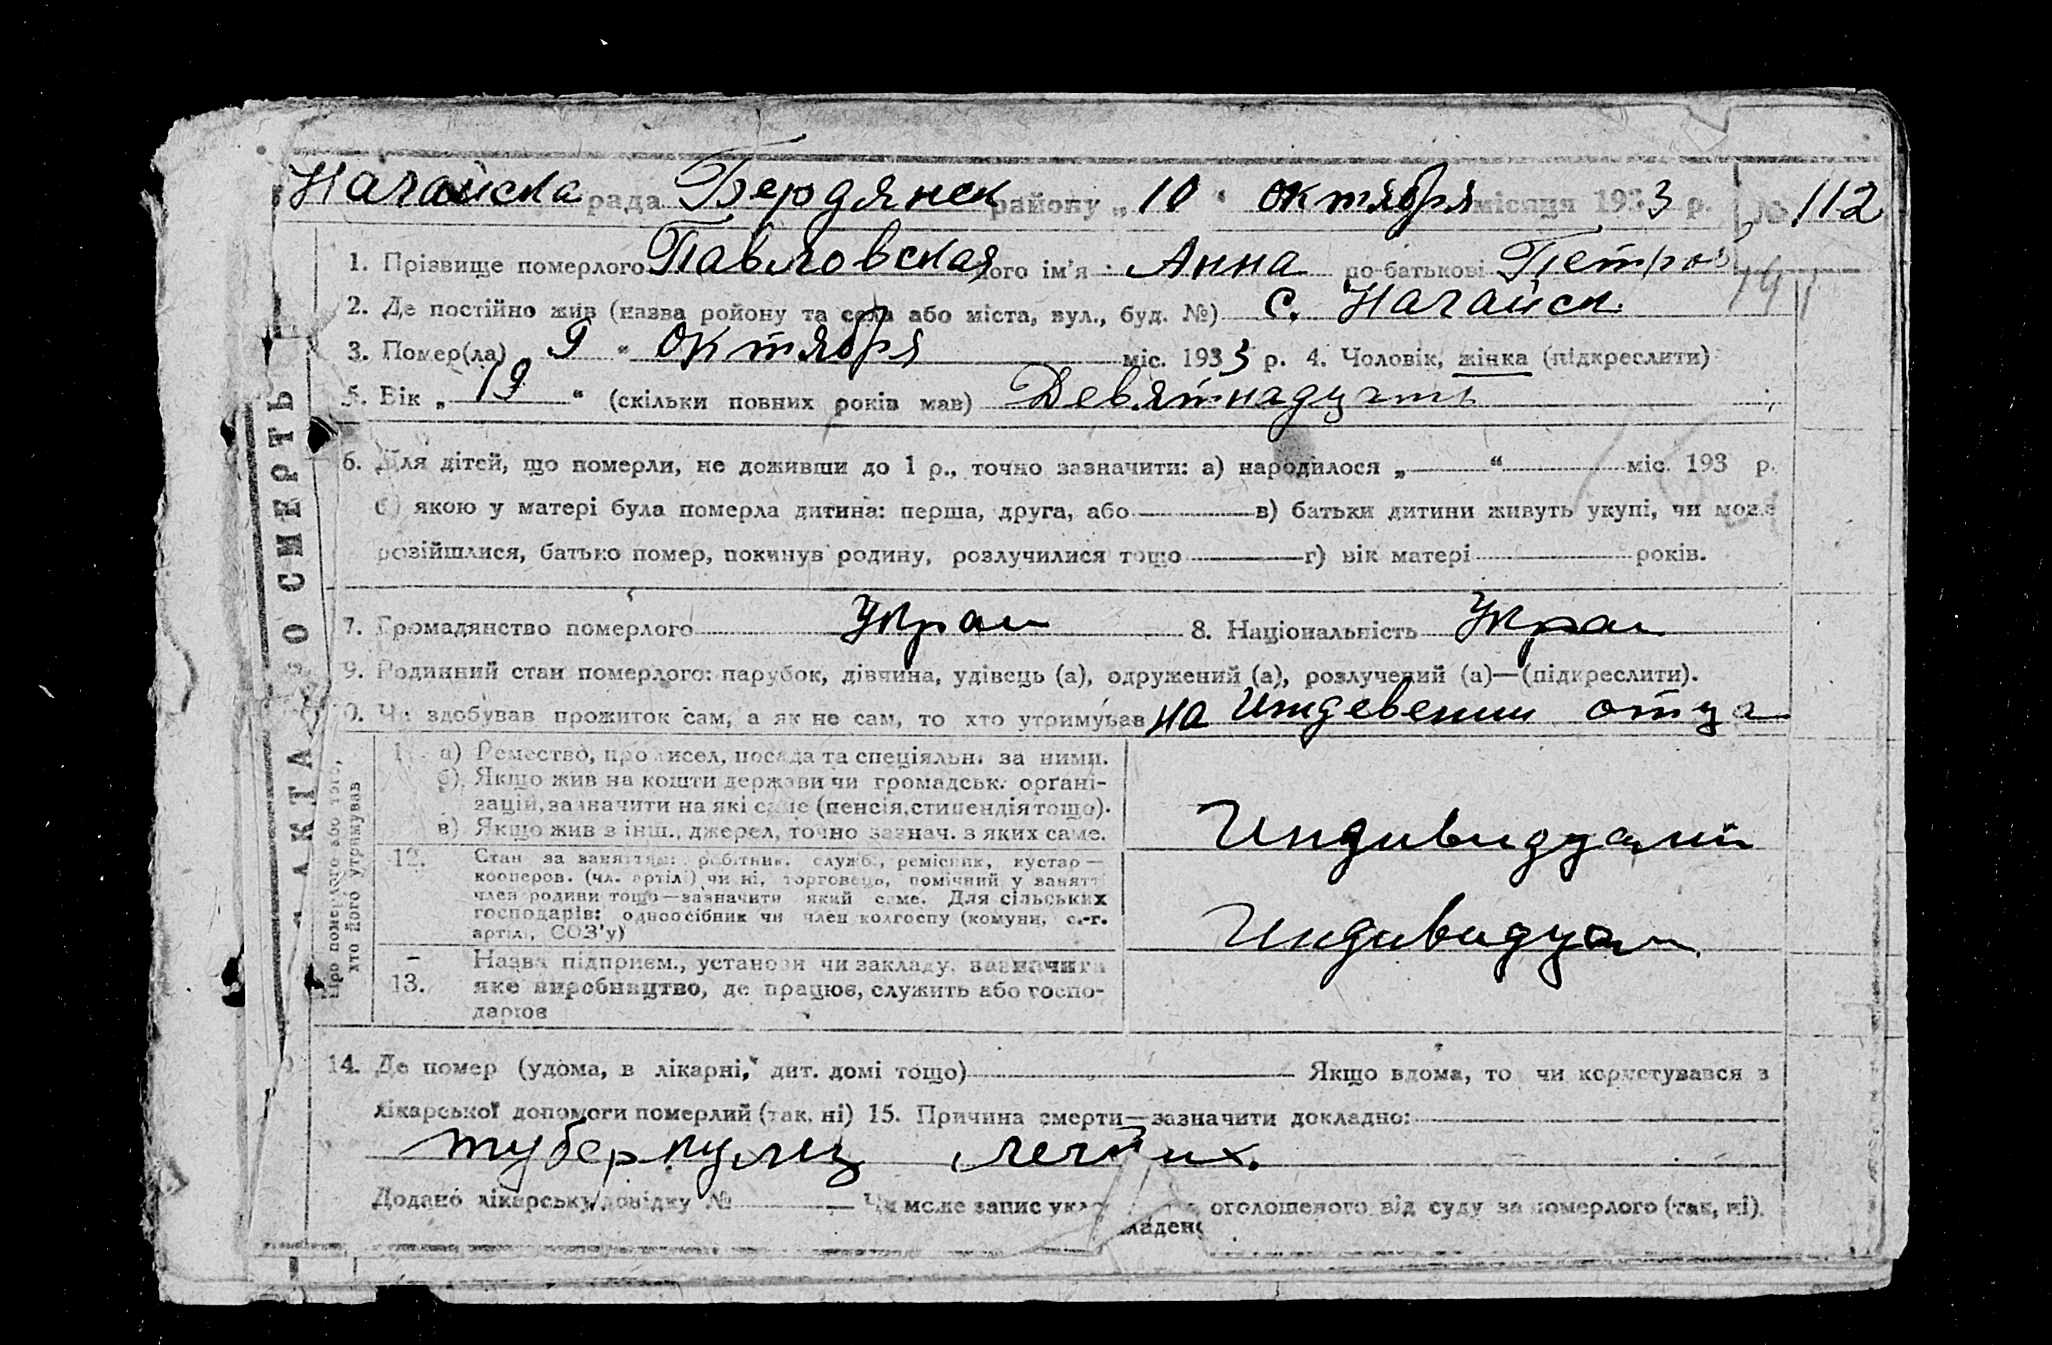 Нагайска рада Бердянск району „ 10 " октября місяця 1933 р. № 112
1. Прізвище померлого Павловская його ім'я Анна по-батькові Петров
141
2. Де постійно жив (назва ройону та села або міста, вул., буд. №) с. Нагайск
3. Помер(ла) 9 " октября міс. 1933 р. 4. Чоловік, жінка (підкреслити)
5. Вік „ 19 " (скільки повних років мав) Девятнадцать
6. Для дітей, що померли, не доживши до 1 р., точно зазначити: а) народилося „ " міс. 193 р.
б) якою у матері була померла дитина: перша, друга, або в) батьки дитини живуть укупі, чи може
розійшлися, батько помер, покинув родину, розлучилися тощо г) вік матері років.
7. Громадянство померлого Украи 8. Національність Украи
9. Родинний стан померлого: парубок, дівчина, удівець (а), одружений (а), розлучений (а)—(підкреслити).
10. Чи здобував прожиток сам, а як не сам, то хто утримував на иждевении отца
АКТ ПРО СМЕРТЬ
Про померлого або того, хто його утримував
11. а) Ремество, промисел, посада та спеціяльн. за ними.
б) Якщо жив на кошти держави чи громадськ. органі-
зацій, зазначити на які саме (пенсія, стипендія тощо).
в) Якщо жив з інш., джерел, точно зазнач. з яких саме.
Индивидуалн
12. Стан за заняттям: робітник, служб., ремісник, кустар—
кооперов. (чл. артілі) чи ні, торговець, помічний у занятт
член родини тощо—зазначити який саме. Для сільських
господарів: одноосібник чи член колгоспу (комуни, с.-г.
артілі, СОЗ'у)
Индивидуал
13. Назва підприєм., установи чи закладу, зазначити
яке виробництво, де працює, служить або госпо-
дарює
14. Де помер (удома, в лікарні, дит. домі тощо) Якщо вдома, то чи користувався з
лікарської допомоги померлий (так, ні) 15. Причина смерти—зазначити докладно:
туберкулез легких.
Додано лікарську довідку № Чи може запис укладено оголошеного від суду за померлого (так, ні).